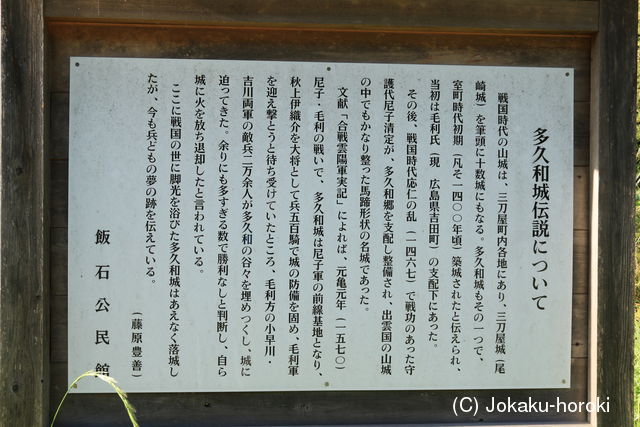 多久和城伝説について
戦国時代の山城は、三刀屋町内各地にあり、三刀屋城（尾
崎城）を筆頭に十数城にもなる。多久和城もその一つで、
室町時代初期（凡そ一四〇〇年頃）築城されたと伝えられ、
当初は毛利氏（現　広島県吉田町）の支配下にあった。
その後、戦国時代応仁の乱（一四六七）で戦功のあった守
護代尼子清定が、多久和郷を支配し整備され、出雲国の山城
の中でもかなり整った馬蹄形状の名城であった。
文献「合戦雲陽軍実記」によれば、元亀元年（一五七〇）
尼子・毛利の戦いで、多久和城は尼子軍の前線基地となり、
秋上伊織介を大将として兵五百騎で城の防備を固め、毛利軍
を迎え撃とうと待ち受けていたところ、毛利方の小早川・
吉川両軍の敵兵二万余人が多久和の谷々を埋めつくし、城に
迫ってきた。余りにも多すぎる数で勝利なしと判断し、自ら
城に火を放ち退却したと言われている。
ここに戦国の世に脚光を浴びた多久和城はあえなく落城し
たが、今も兵どもの夢の跡を伝えている。
（藤原豊善）
飯石公民館
(C) Jokaku-horoki